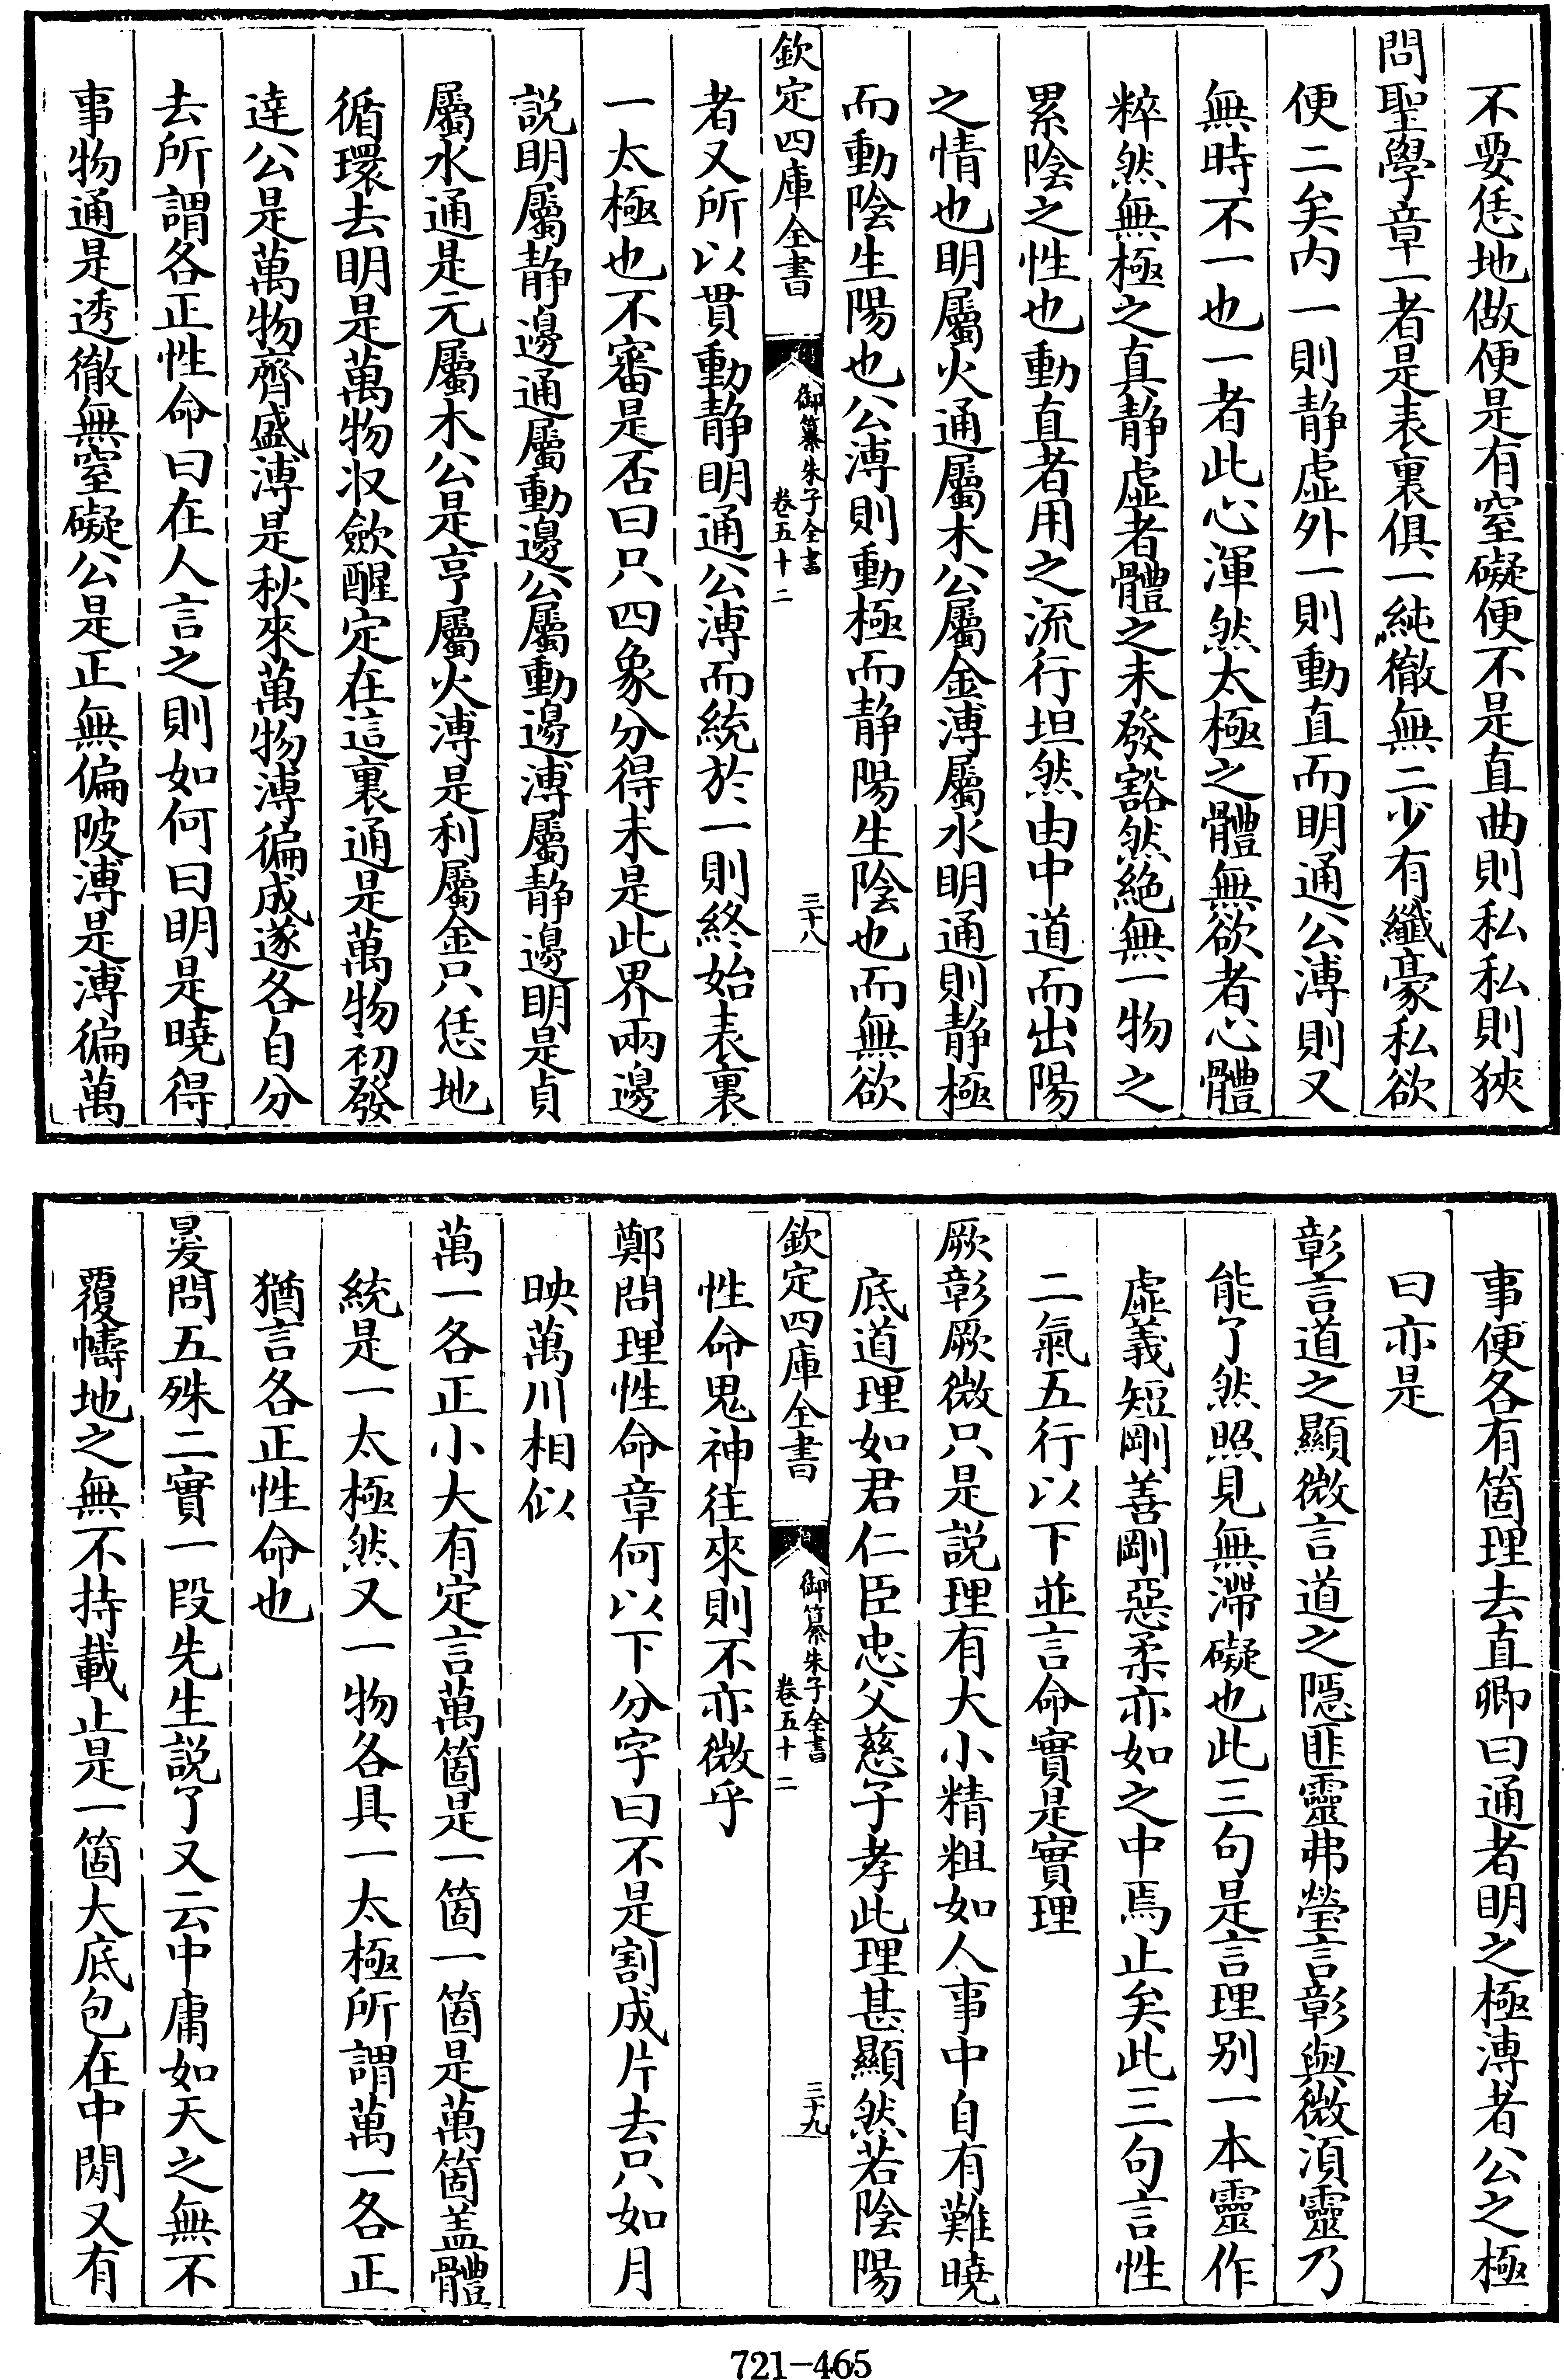 不要恁地做便是有窒礙便不是直曲則私私則狹
問聖學章一者是表裏俱一純徹無二少有纖豪私欲
便二矣内一則静虚外一則動直而明通公溥則又
無時不一也一者此心渾然太極之體無欲者心體
粹然無極之真静虚者體之未發豁然絶無一物之
累陰之性也動直者用之流行坦然由中道而出陽
之情也明屬火通屬木公屬金溥屬水明通則静極
而動陰生陽也公溥則動極而静陽生陰也而無欲
欽定四庫全書
御纂朱子全書
卷五十二
三十八
者又所以貫動静明通公溥而統於一則終始表裏
一太極也不審是否曰只四象分得未是此界兩邊
説明屬静邊通屬動邊公屬動邊溥屬静邊明是貞
屬水通是元屬木公是亨屬火溥是利屬金只恁地
循環去明是萬物収歛醒定在這裏通是萬物初發
達公是萬物齊盛溥是秋來萬物溥徧成遂各自分
去所謂各正性命曰在人言之則如何曰明是曉得
事物通是透徹無窒礙公是正無偏陂溥是溥徧萬
事便各有箇理去直卿曰通者明之極溥者公之極
曰亦是
彰言道之顯微言道之隠匪靈弗瑩言彰與微須靈乃
能了然照見無滯礙也此三句是言理别一本靈作
虚義短剛善剛惡柔亦如之中焉止矣此三句言性
二氣五行以下並言命實是實理
厥彰厥微只是説理有大小精粗如人事中自有難曉
底道理如君仁臣忠父慈子孝此理甚顯然若陰陽
欽定四庫全書
御纂朱子全書
卷五十二
三十九
性命鬼神往來則不亦微乎
鄭問理性命章何以下分字曰不是割成片去只如月
映萬川相似
萬一各正小大有定言萬箇是一箇一箇是萬箇盖體
統是一太極然又一物各具一太極所謂萬一各正
猶言各正性命也
㬊問五殊二實一段先生説了又云中庸如天之無不
覆幬地之無不持載止是一箇大底包在中閒又有
721-465